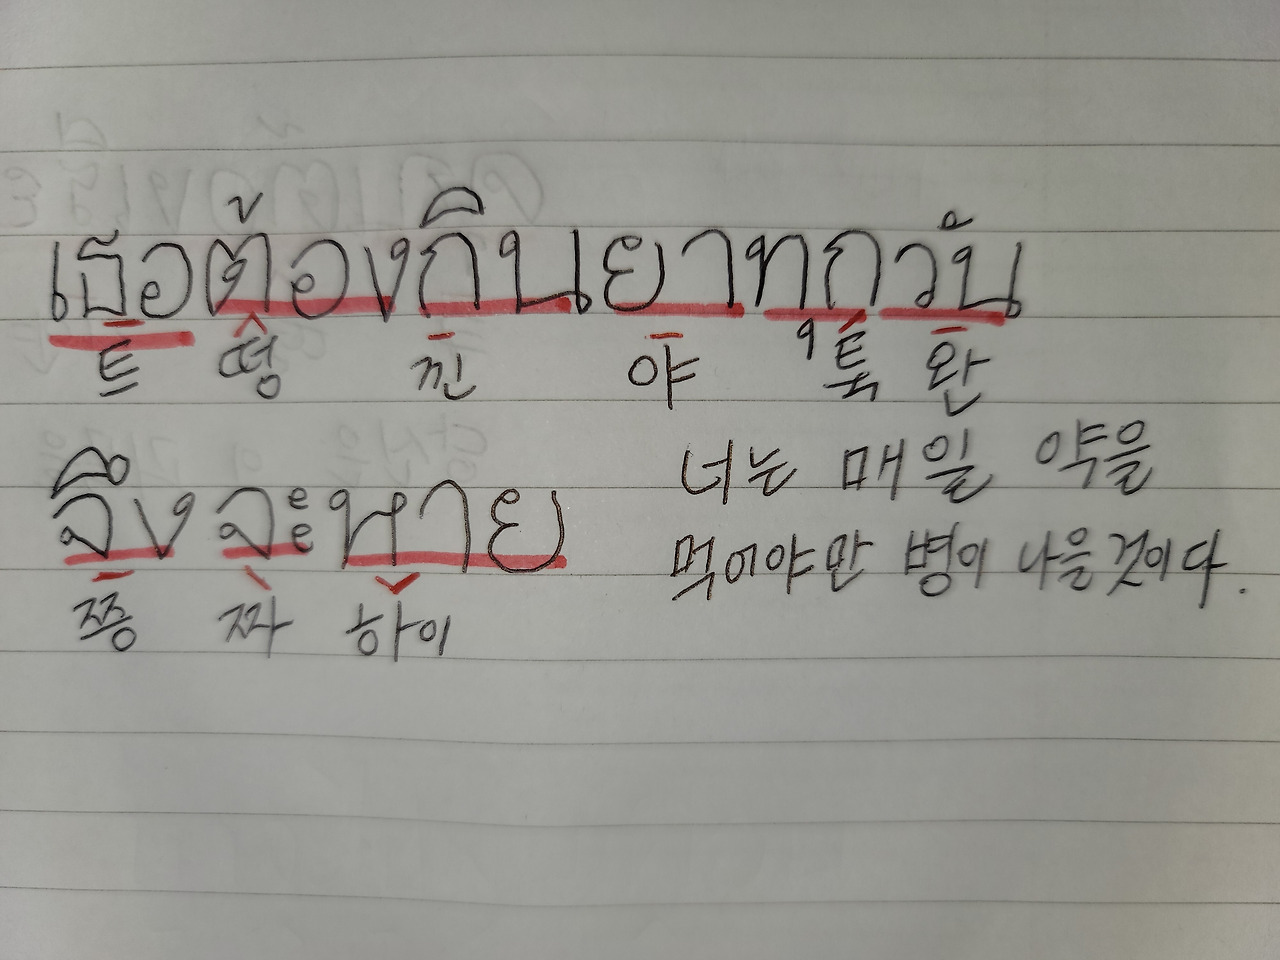 เธอต้องกินยาทุกวัน
트 떵 낀 야 툭 완
จึงจะหาย
쯩 짜 하이
너는 매일 약을
먹어야만 병이 나을것이다.